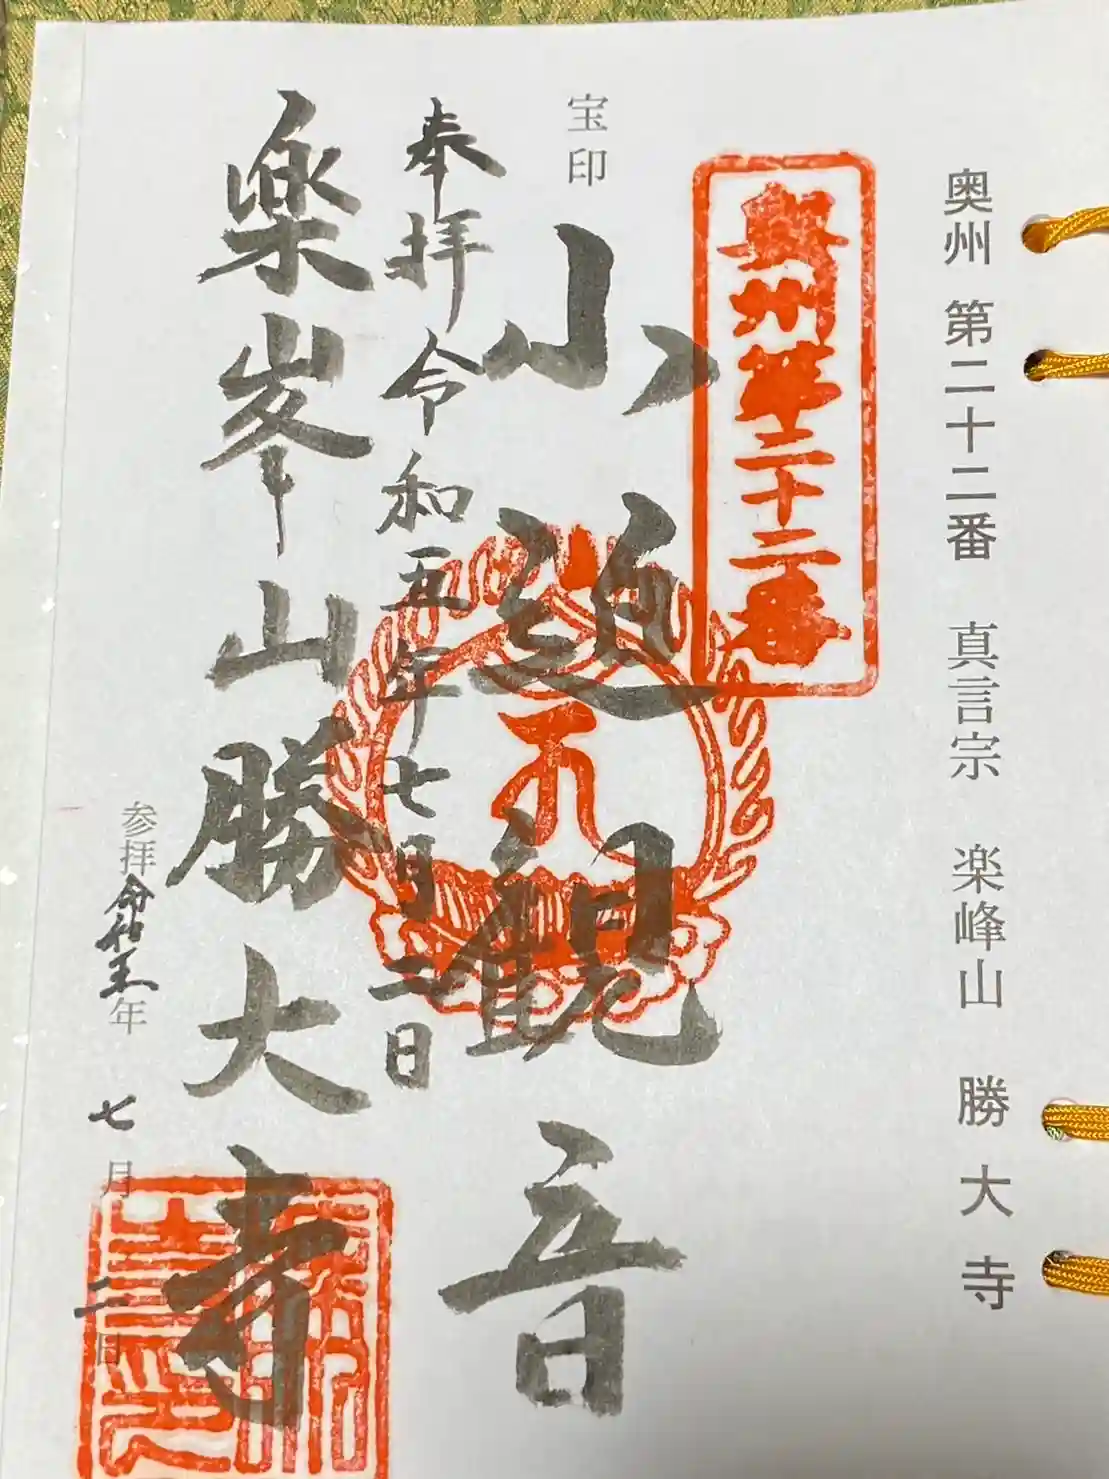 奥州 第二十二番 真言宗 楽峰山 勝大寺
奥州第二十二番
宝印
小迫観音
奉拝令和五年七月二日
楽峯山勝大寺
参拝令和五年 七月 二日